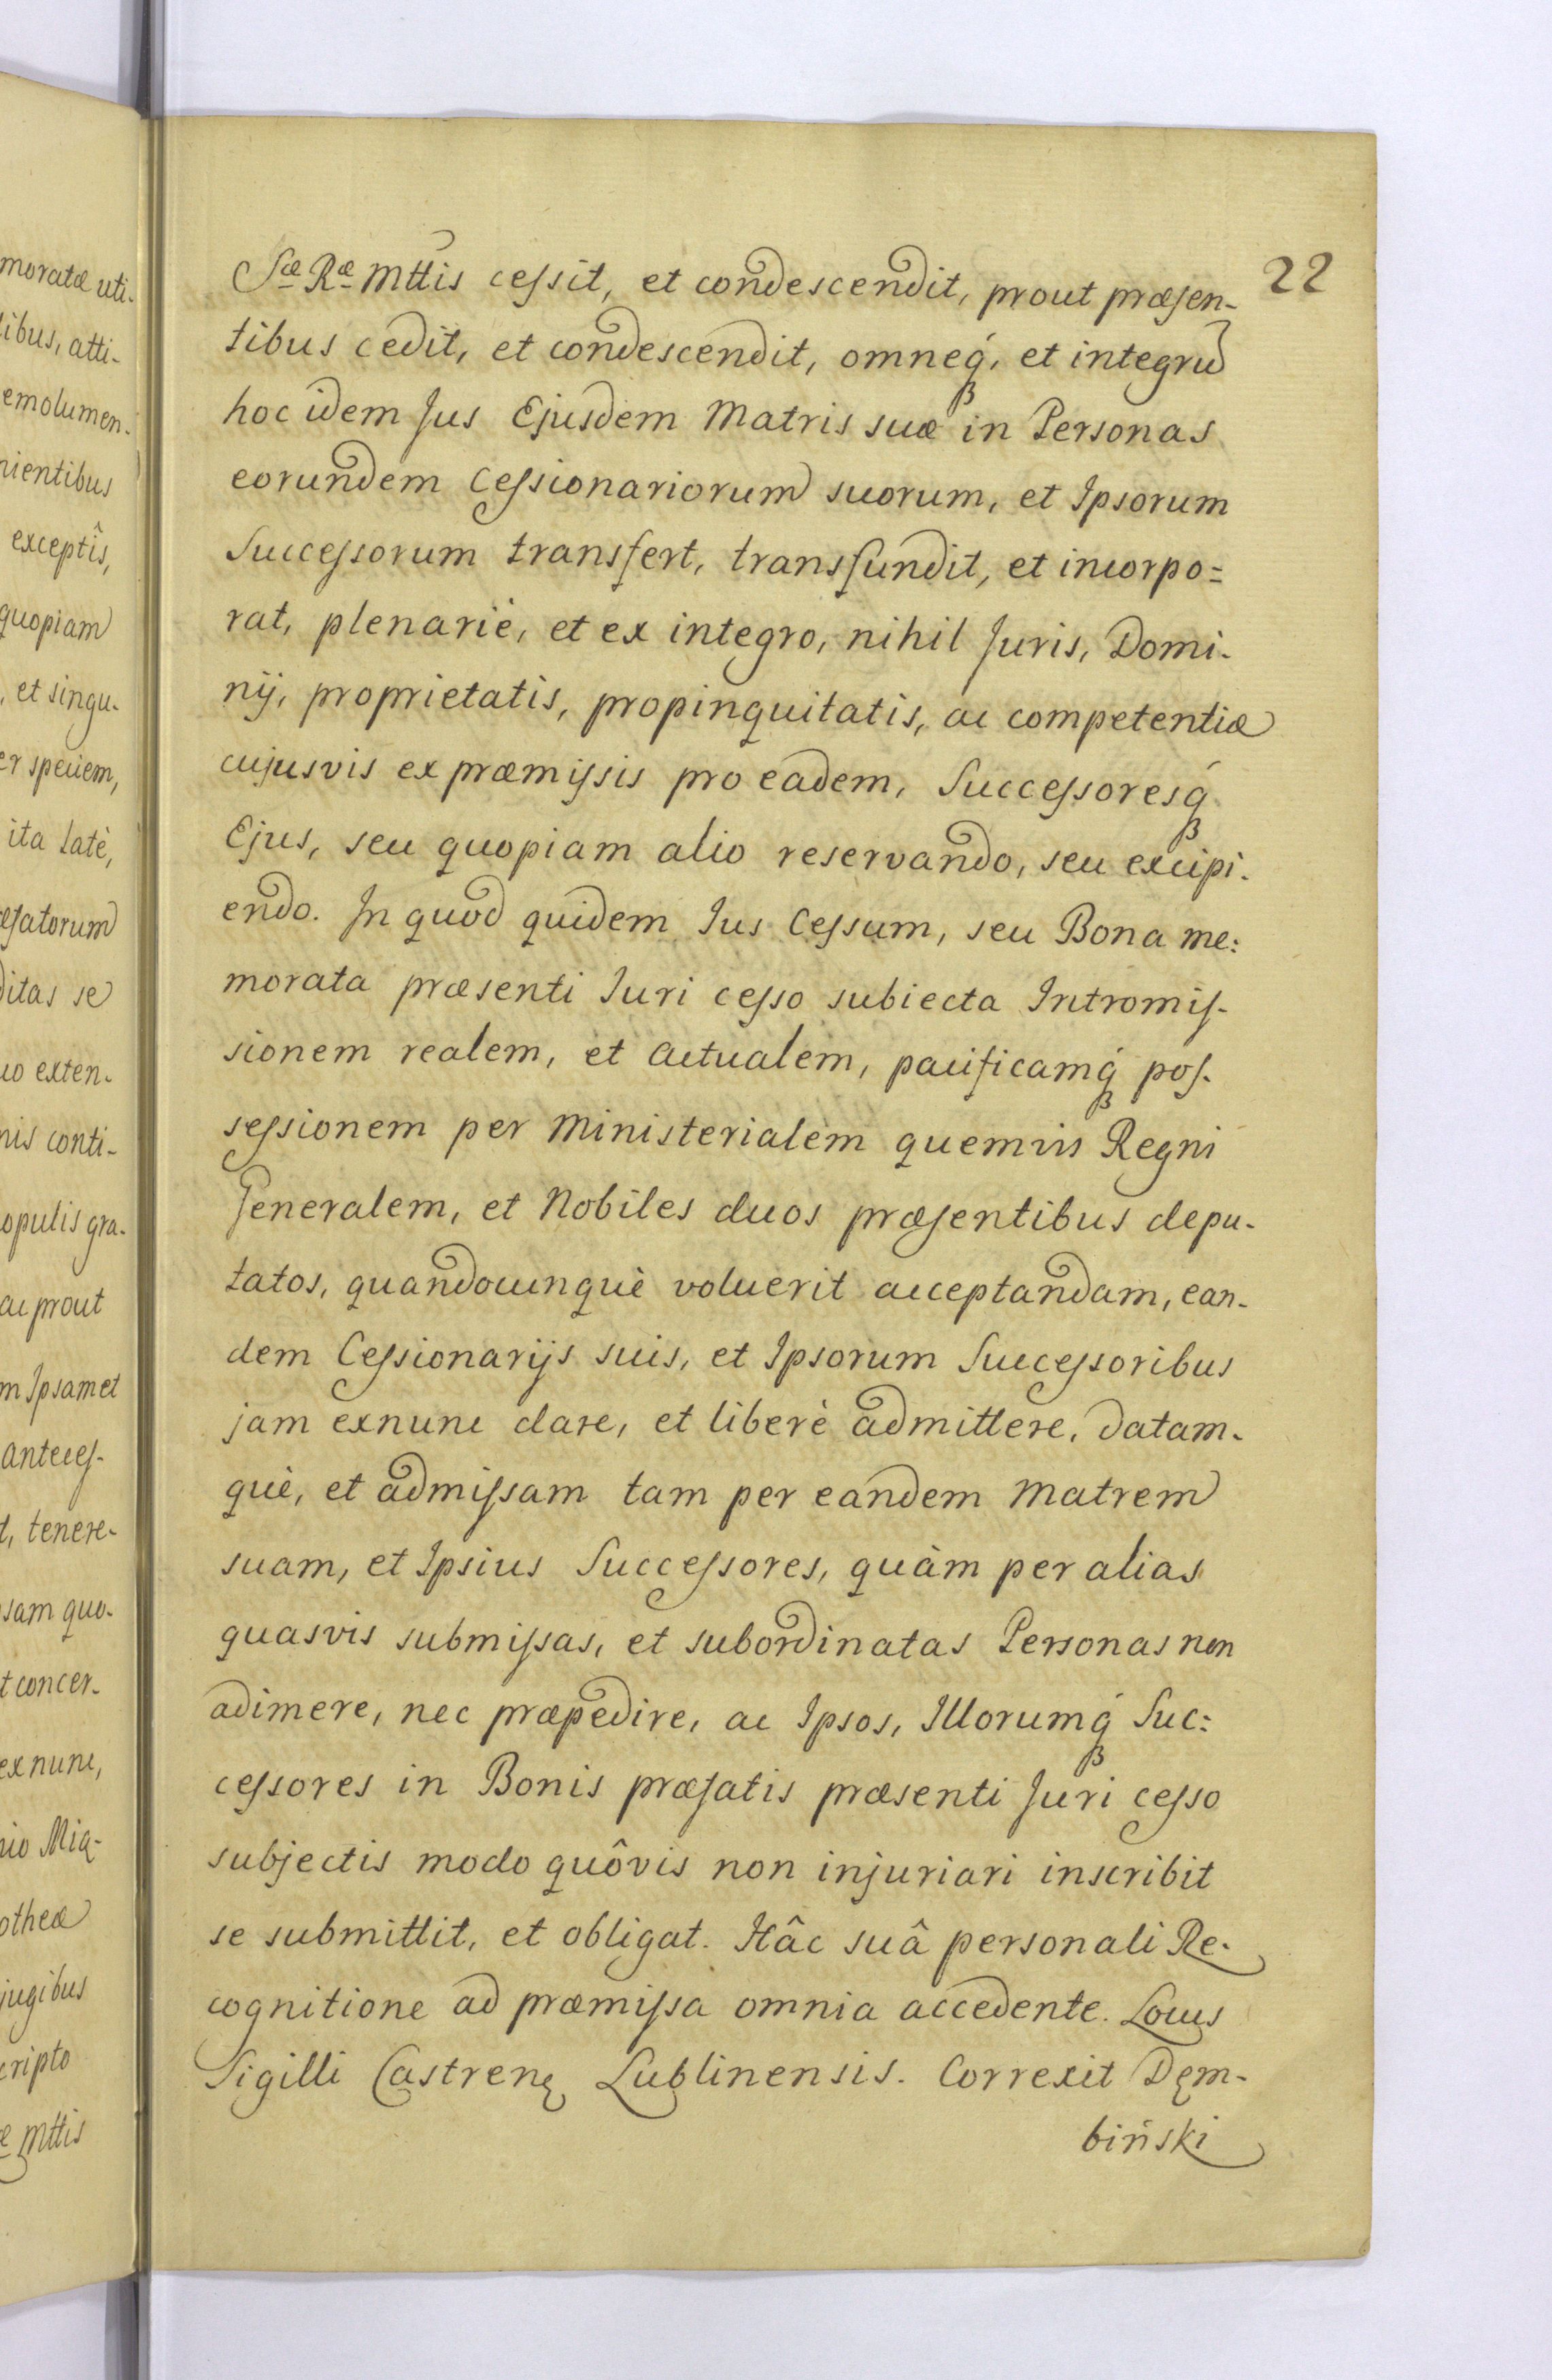 moratæ uti-
tibus, atti-
emolumen-
nientibus
exceptîs,
quopiam
, et singu-
er speciem,
ita latè,
æfatorum
ditas se
uo exten-
nis conti-
opulis gra-
ac prout
m Ipsamet
anteces-
t, tenere-
sam quo-
t concer-
ex nunc,
nio Mią-
othecæ
jugibus
cripto
æ Mttis
22
Sæ Ræ Mttis cessit, et condescendit, prout præsen-
tibus cedit, et condescendit, omneq́, et integrũ
hoc idem Jus Ejusdem Matris suæ in Personas
eorundem Cessionariorum suorum, et Ipsorum
Successorum transfert, transfundit, et incorpo=
rat, plenariè, et ex integro, nihil Juris, Domi-
nij, proprietatis, propinquitatis, ac competentiæ
cujusvis ex præmissis pro eadem, Successoresq́
Ejus, seu quopiam alio reservando, seu excipi-
endo. In quod quidem Jus Cessum, seu Bona me:
morata præsenti Juri cesso subiecta Intromis-
sionem realem, et actualem, pacificamq́ pos-
sessionem per Ministerialem quemvis Regni
Generalem, et Nobiles duos præsentibus depu-
tatos, quandocunquè voluerit acceptandam, ean-
dem Cessionarijs suis, et Ipsorum Successoribus
jam exnunc dare, et liberè admittere, datam-
què, et admissam tam per eandem Matrem
suam, et Ipsius Successores, quàm per alias
quasvis submissas, et subordinatas Personas non
adimere, nec præpedire, ac Ipsos, Illorumq́ Suc:
cessores in Bonis præfatis præsenti Juri cesso
subjectis modo quôvis non injuriari inscribit
se submittit, et obligat. Hâc suâ personali Re-
cognitione ad præmissa omnia accedente. Locus
Sigilli Castrenę Lublinensis. Correxit Dęm-
biński